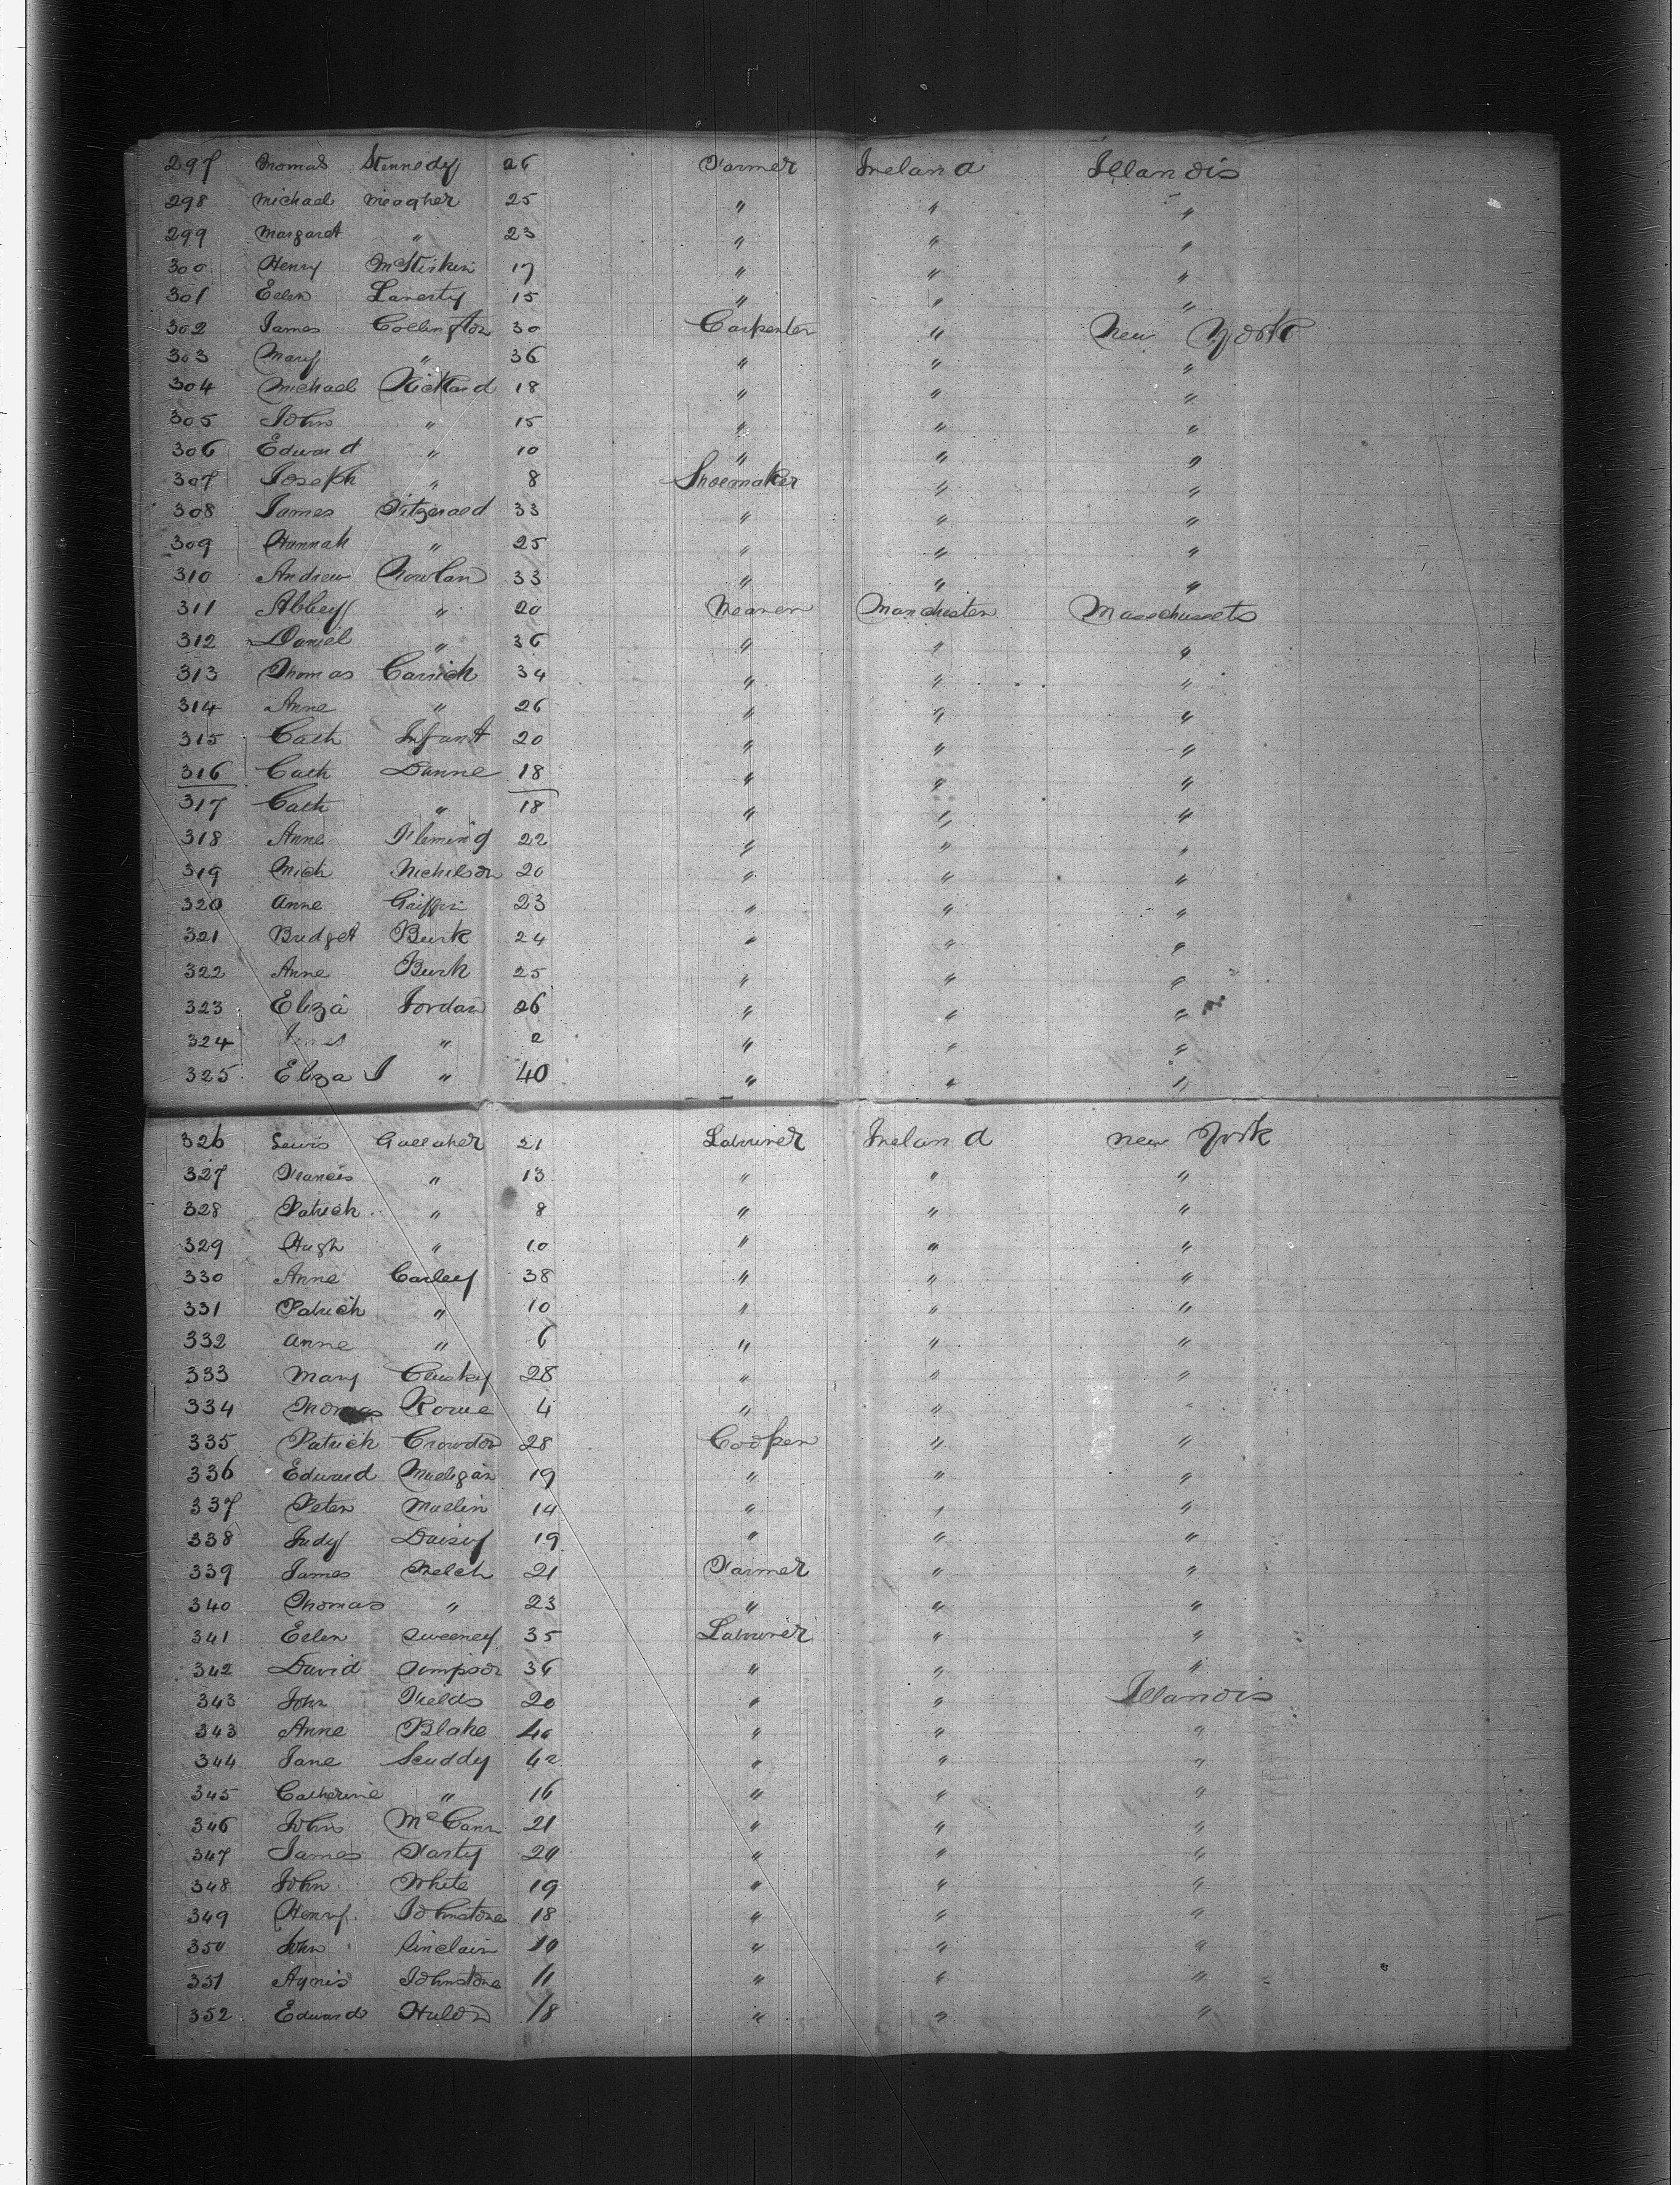 297 Thomas Kennedy 26 Farmer Ireland Illanois
298 Michael Meagher 25 " " "
299 Margaret " 23 " " "
300 Henry 17 " " "
301 Ellen Laverty 15 " " "
302 James Collington 30 Carpenter " New York
303 Mary " 36 " " "
304 Michael Rickard 18 " " "
305 John " 15 " " "
306 Edward " 10 " " "
307 Joseph " 8 Shoemaker " "
308 James Fitzgerald 33 " " "
309 Hannah " 25 " " "
310 Andrew Nowlan 33 " " "
311 Abbey " 20 Weaver Manchester Massechussets
312 Daniel " 36 " " "
313 Thomas Carrick 34 " " "
314 Anne " 26 " " "
315 Cath Infant 20 " " "
316 Cath Dunne 18 " " "
317 Cath " 18 " " "
318 Anne Fleming 22 " " "
319 Mich Nichelson 20 " " "
320 Anne Griffin 23 " " "
321 Bridget Burk 24 " " "
322 Anne Burk 25 " " "
323 Eliza Jordan 26 " " "
324 " 2 " " "
325 Eliza J " 40 " " "
326 Lewis Gallaher 21 Labourer Ireland New York
327 Francis " 13 " " "
328 Patrick " 8 " " "
329 Hugh " 10 " " "
330 Anne Carley 38 " " "
331 Patrick " 10 " " "
332 Anne " 6 " " "
333 Mary Clusky 28 " " "
334 Thomas Rowe 4 " " "
335 Patrick Crowdon 28 Cooper " "
336 Edward Mulligan 19 " " "
337 Peter Mullin 14 " " "
338 Judy Daisy 19 " " "
339 James Welch 21 Farmer " "
340 Thomas " 23 " " "
341 Ellen Sweeney 35 Labourer " "
342 David Simpson 36 " " "
343 John Fields 20 " " Illanois
343 Anne Blake 40 " " "
344 Jane Scuddy 42 " " "
345 Catherine " 16 " " "
346 John McCann 21 " " "
347 James Farty 20 " " "
348 John White 19 " " "
349 Henry Johnstone 18 " " "
350 John Sinclair 10 " " "
351 Agnis Johnstone 11 " " "
352 Edward 18 " " "